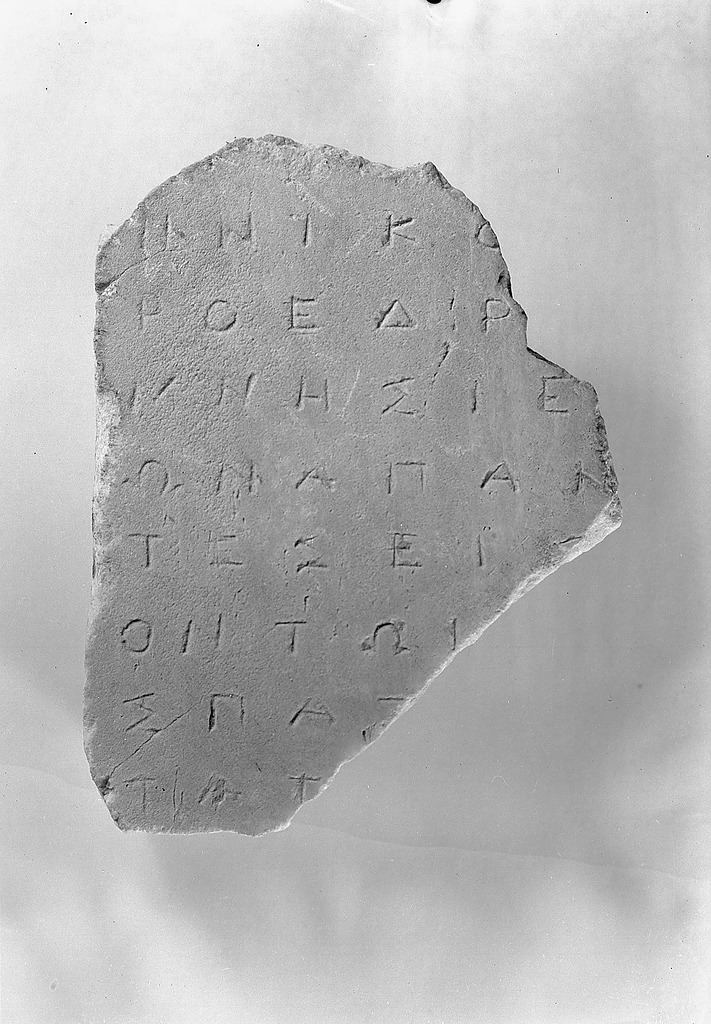 ΗΝΤΚΟ
ΡΟΕΔΡ
ΝΝΗΣΙΕ
ΩΝΑΠΑΝ
ΤΕΣΕΙ
ΟΝΤΩΙ
ΣΠΑΤ
ΤΑΤ